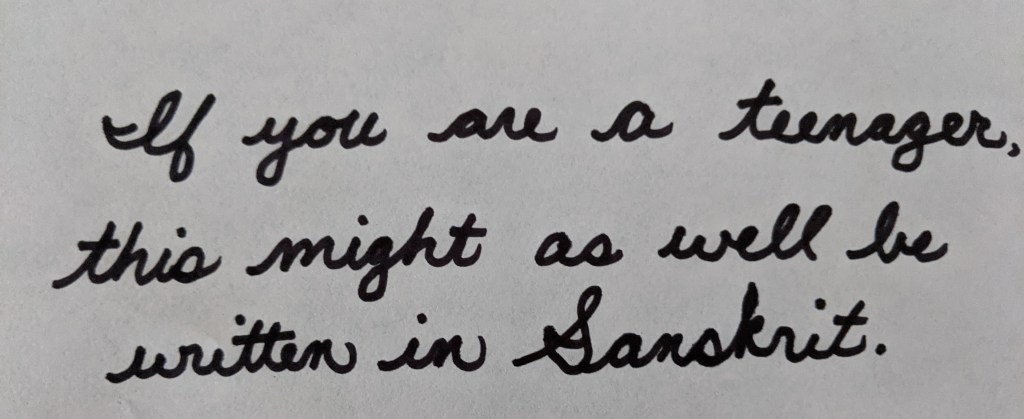 If you are a teenager,
this might as well be
written in Sanskrit.